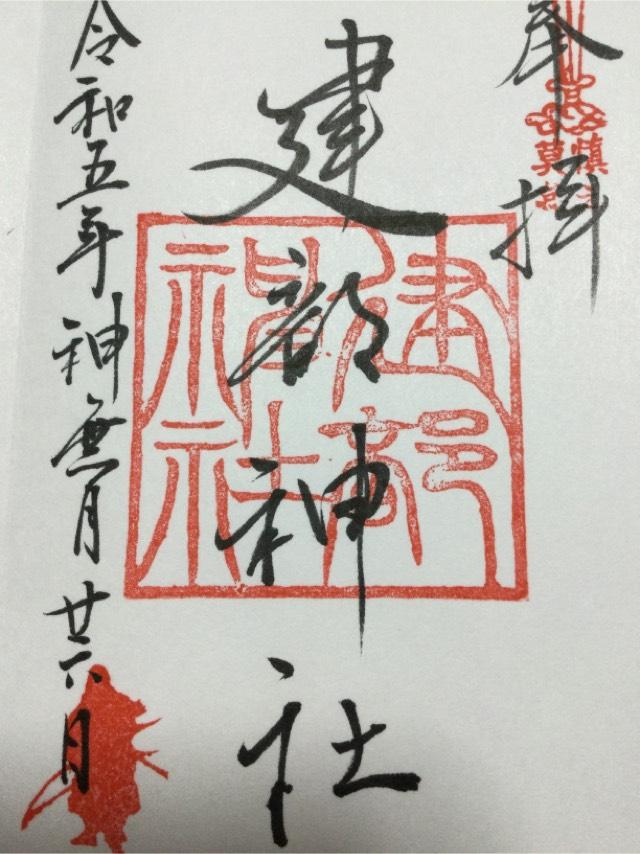 奉拝
建部神社
建部
神社
令和五年神無月廿六日